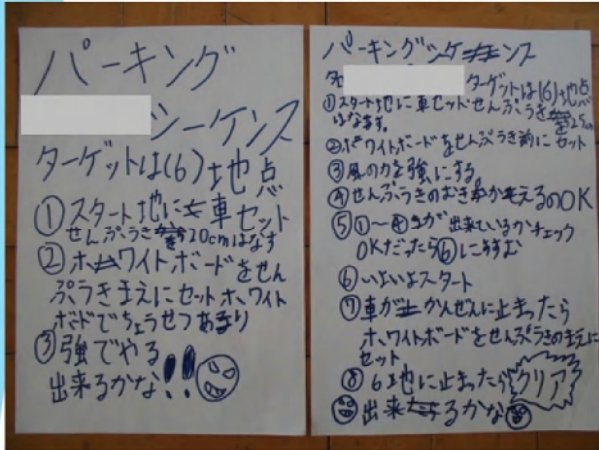 パーキング
シーケンス
ターゲットは(6)地点
①スタート地に車セット
せんぷうきを20cmはなす
②ホワイトボードをせん
ぷうきまえにセットホワイト
ボドでちょうせつあり
③強でやる
出来るかな!!
パーキングシケンス
ターゲットは(6)地点
①スタート地に車セットせんぷうきを25cm
はなす。
②ホワイトボードをせんぷうき前にセット
③風の力を強にする。
④せんぷうきのむきかえるのOK
⑤①〜④が出来ているかチェック
OKだったら⑥にすすむ
⑥いよいよスタート
⑦車がかんぜんに止まったら
ホワイトボードをせんぷうきのまえに
セット
⑧6地に止まったらクリア
出来るかな